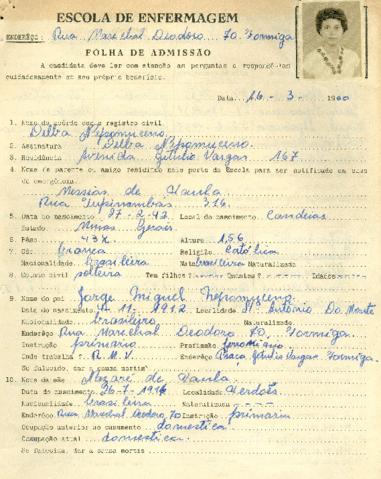 ESCOLA DE ENFERMAGEM
ENDERÊÇO: Rua Marechal Deodoro 70 Formiga
FOLHA DE ADMISSÃO
A candidata deve ler com atenção as perguntas e respondê-las
cuidadosamente em seu próprio benefício.
Data, 16 - 3 - 1960
1. Nome de acôrdo com o registro civil
Delba Nepomuceno
2. Assinatura Delba Nepomuceno
3. Residência Avenida Getulio Vargas 167
4. Nome de parente ou amigo residindo mais perto da Escola para ser notificado em caso
de emergência.
Messias de Paula
Rua Tupinambas 316
5. Data do nascimento 27-2-42 Local do nascimento Candeias
Estado Minas Gerais
6. Pêso 43 K Altura 1,56
7. Côr branca Religião Católica
Nacionalidade brasileira Nata brasileira Naturalizada
8. Estado civil solteira Tem filhos? Quantos? Idades
9. Nome do pai Jorge Miguel Nepomuceno
Data do nascimento 4-11-1912 Localidade St. Antônio Do Monte
Nacionalidade brasileiro Naturalizado
Enderêço Rua Marechal Deodoro 70 Formiga
Instrução primária Profissão ferroviário
Onde trabalha? R.M.V. Enderêço Praça Getulio Vargas Formiga.
Se falecido, dar a causa mortis
10. Nome da mãe Nazaré de Paula
Data do nascimento 26-7-1916 Localidade
Nacionalidade brasileira Naturalizada
Enderêço Rua Marechal Deodoro, 70 Instrução primária
Ocupação anterior ao casamento doméstica
Ocupação atual doméstica.
Se falecida, dar a causa mortis